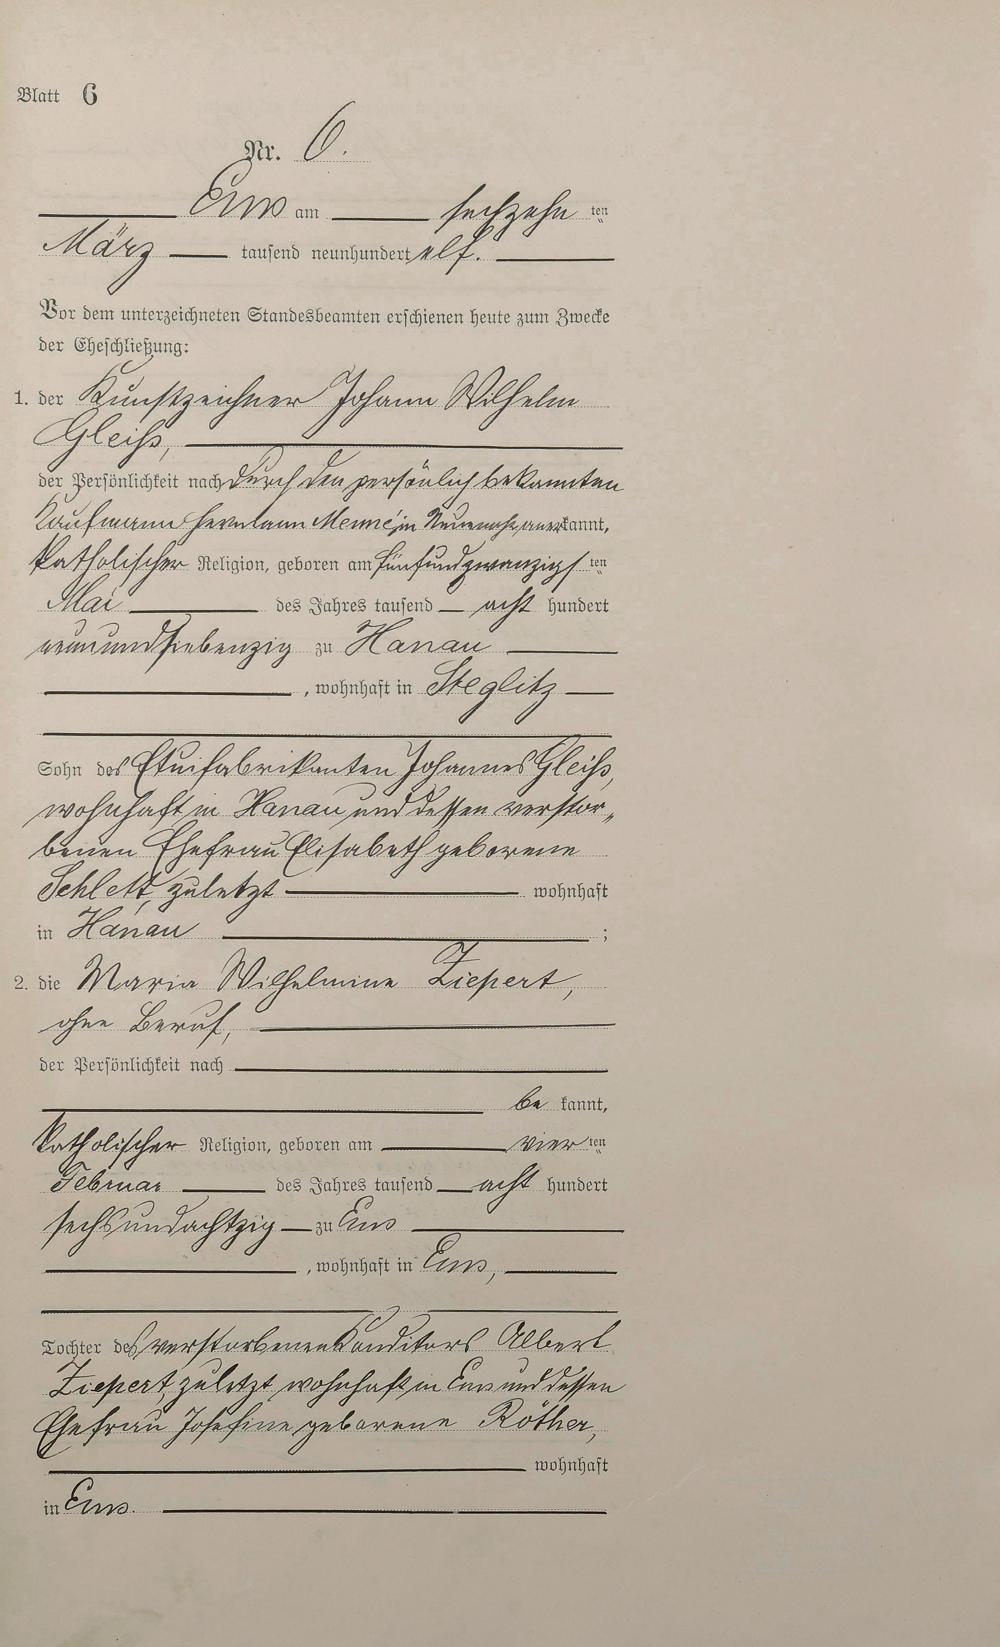 Blatt 6
Nr. 6.
Ems am sechzehn ten
März tausend neunhundert elf.
Vor dem unterzeichneten Standesbeamten erschienen heute zum Zwecke
der Eheschließung:
1. der Kunstzeichner Johann Wilhelm
Gleiß,
der Persönlichkeit nach durch den persönlich bekannten
Kaufmann Hermann Menné in Neuenahr anerkannt,
katholischer Religion, geboren am fünfundzwanzigsten
Mai des Jahres tausend acht hundert
neunundsiebenzig zu Hanau
, wohnhaft in Steglitz
Sohn des Etuifabrikanten Johannes Gleiß,
wohnhaft in Hanau und dessen verstor„
benen Ehefrau Elisabeth geborene
Schlett, zuletzt wohnhaft
in Hanau ;
2. die Maria Wilhelmine Ziepert,
ohne Beruf,
der Persönlichkeit nach
be kannt,
katholischer Religion, geboren am vier ten
Februar des Jahres tausend acht hundert
sechsundachtzig zu Ems
, wohnhaft in Ems,
Tochter des verstorbenen Konditors Albert
Ziepert, zuletzt wohnhaft in Ems und dessen
Ehefrau Josefine geborene Röther,
wohnhaft
in Ems.